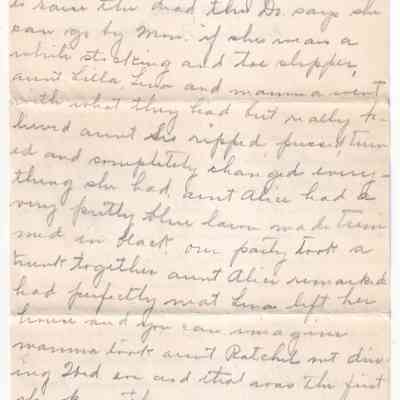 to raise the dead the Dr. says she
can go by Mon. if she wears a
white stocking and toe slipper,
aunt Lilla, Lena and mamma went
with what they had but really be-
lieved aunt Sis ripped, pressed, turn-
ed and completely changed every-
thing she had, aunt Alice had a
very pretty blue lawn made trim
med in black. our party took a
trunk together aunt Alice remarked
had perfectly neat Lena left her
house and you can imagine
mamma took aunt Ratchel not
ing and that was the first